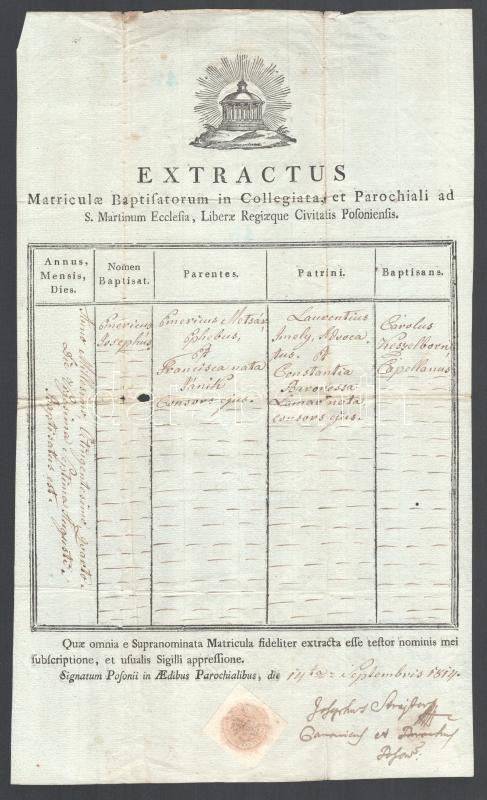 EXTRACTUS
Matriculæ Baptiſatorum in Collegiata, et Parochiali ad
S. Martinum Eccleſia, Liberæ Regiæque Civitatis Poſonienſis.
Annus,
Mensis,
Dies.
Nomen
Baptisat.
Parentes.
Patrini.
Baptisans.
Anno Millesimo Octingentesimo quarto.
Die Vigesima Septima Augusti
Baptisatus est.
Emericus
Josephus
Emericus Metsár
Ephebus,
Et
Francisca nata
Vanik
Consors ejus.
Laurentius
Imely, Advoca
tus. Et
Constantia
Baronessa
nata
consors ejus.
Carolus
Kesselborn
Capellanus
Quæ omnia e Supranominata Matricula fideliter extracta eſſe teſtor nominis mei
ſubſcriptione, et uſualis Sigilli appreſſione.
Signatum Poſonii in Ædibus Parochialibus, die 14ta Septembris 1814.
Josephus
Canonicus et Parochus